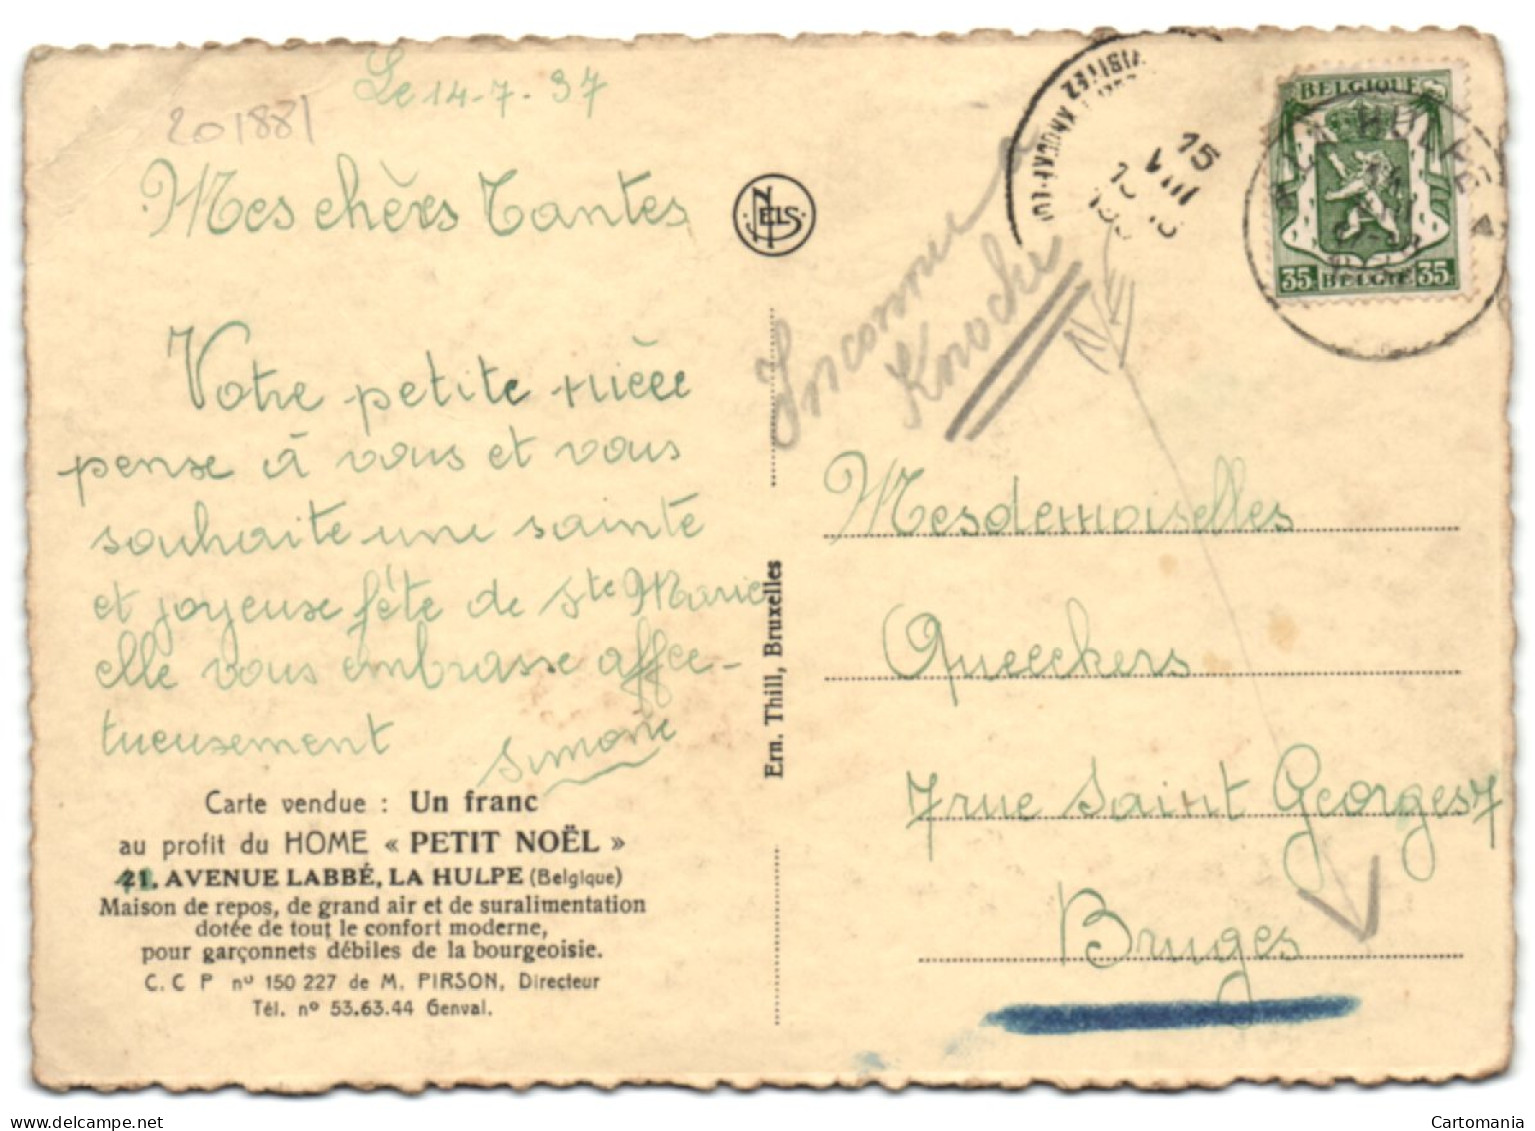 Le 14-7-37
201881
Mes chères Tantes
Votre petite nièce
pense à vous et vous
souhaite une sainte
et joyeuse fête de Ste Marie
elle vous embrasse affec-
tueusement
Simone
Carte vendue : Un franc
au profit du HOME « PETIT NOËL »
21, AVENUE LABBÉ, LA HULPE (Belgique)
Maison de repos, de grand air et de suralimentation
dotée de tout le confort moderne,
pour garçonnets débiles de la bourgeoisie.
C. C P nº 150 227 de M. PIRSON, Directeur
Tél. nº 53.63.44 Genval.
NELS
Ern. Thill, Bruxelles
Inconnu
Knocke
VISITEZ
15
VIII
LA HULPE
BELGIQUE
35 BELGIE 35
Mesdemoiselles
Queeckers
7 rue Saint Georges 7
Bruges
delcampe.net
Cartomania